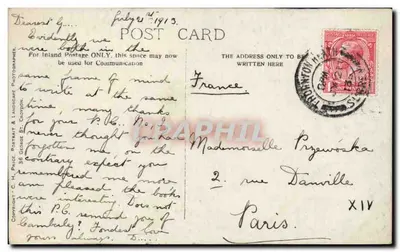 July 2nd 1913.
Dearest G.
Evidently we
were both in the
POST CARD
For Inland Postage ONLY, this space may now
be used for Communication
THE ADDRESS ONLY TO BE
WRITTEN HERE
same frame of mind
to write at the same
time, many thanks
for your P.C. I
never thought you had
forgotten me on the
contrary expect you
remembered me more
am pleased the books
were interesting. Does not
this P.C. remind you of
Camberley? Fondest love
yours always,
France.
Mademoiselle Przewoska
2 rue Danville
Paris.
XIV
THORNTON HEATH